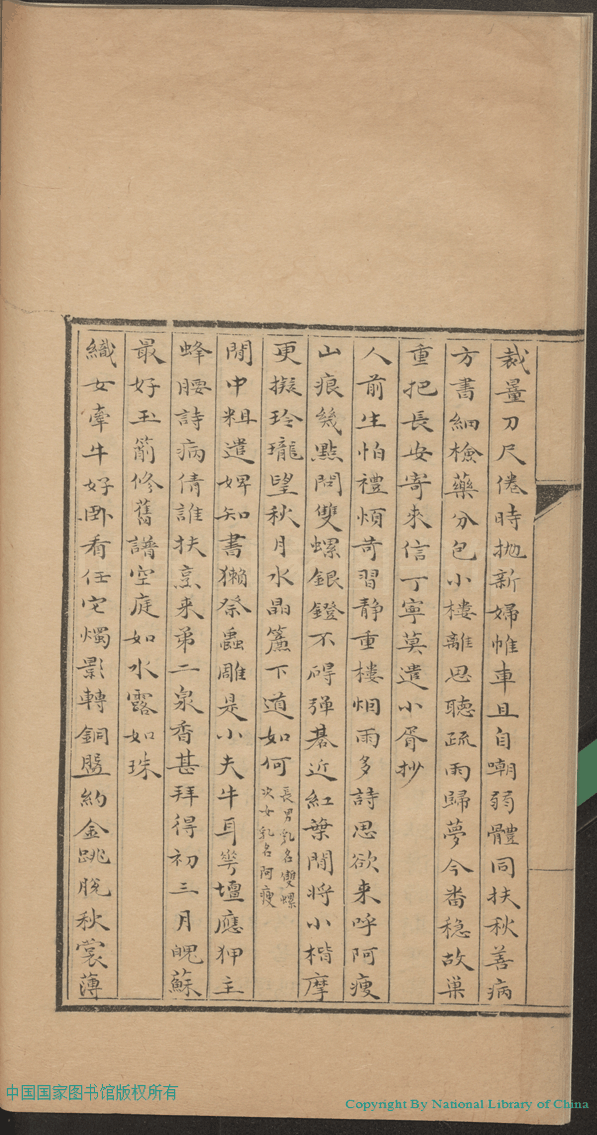 裁量刀尺倦時拋新婦帷車且自嘲弱體同扶秋善病
方書細檢藥分包小樓離思聽疏雨歸夢今番穩故巢
重把長安寄來信丁寧莫遣小胥抄
人前生怕禮煩苛習靜重樓烟雨多詩思欲来呼阿瘦
山痕幾點問雙螺銀鐙不礙彈棊近紅葉閒將小楷摩
更擬玲瓏望秋月水晶簾下道如何長男乳名雙螺
次女乳名阿瘦
閒中粗遣婢知書獺祭蟲雕是小夫牛耳營壇應狎主
蜂腰詩病倩誰扶烹来第二泉香甚拜得初三月魄蘇
最好玉簫修舊譜空庭如水露如珠
織女牽牛好卧看任它燭影轉銅盤約金跳脫秋裳薄
中国国家图书馆版权所有
Copyright By National Library of China